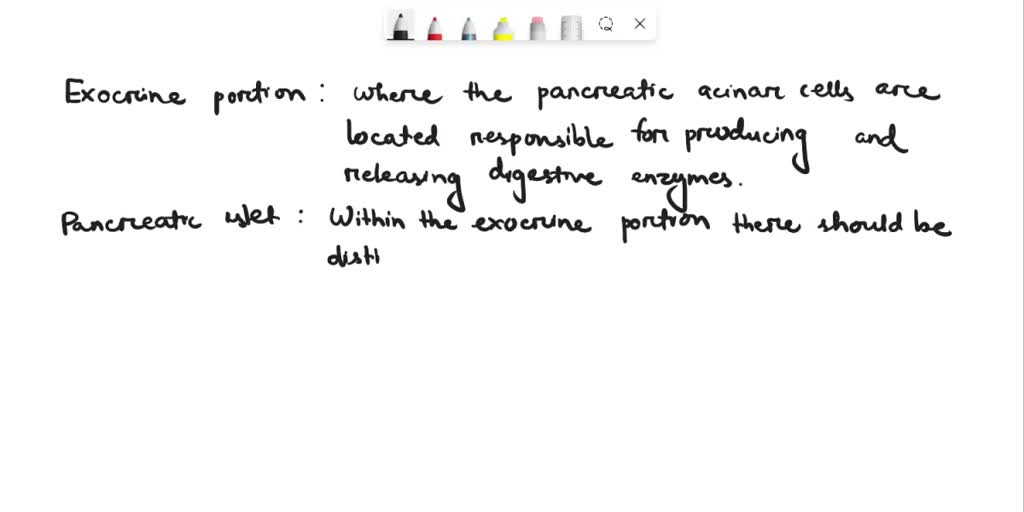 Exocrine portion : where the pancreatic acinar cells are
located responsible for producing and
releasing digestive enzymes.
Pancreatic islet : Within the exocrine portion there should be
disti